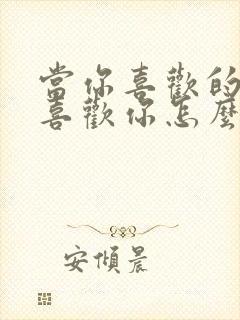 當你喜歡的
喜歡你怎麼
安傾晨